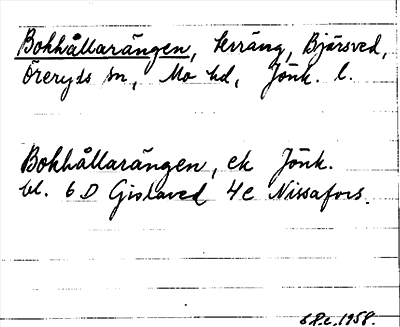 Bokhållarängen, terräng, Bjärsved,
Öreryds sn, Mo hd, Jönk. l.
Bokhållarängen, ek Jönk.
bl. 6 D Gislaved 4e Nissafors.
1958.